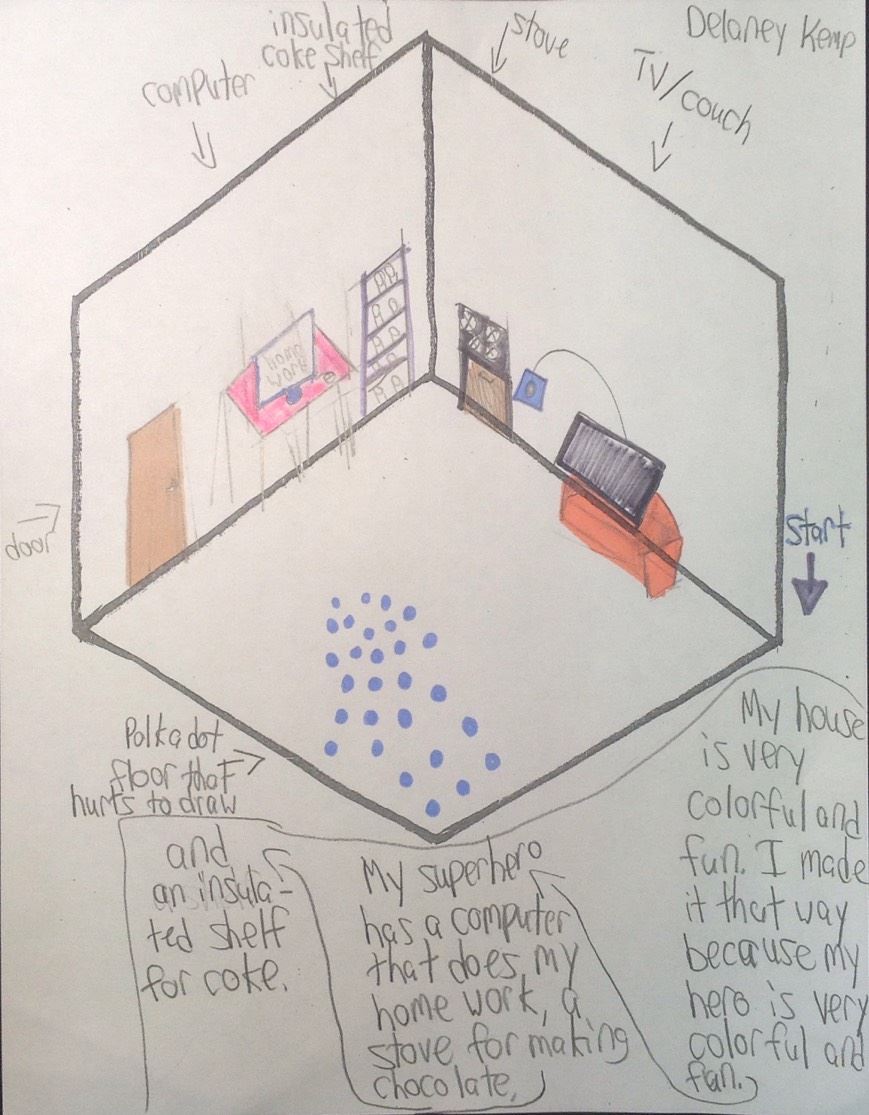 Delaney Kemp
insulated
coke shelf
stove
TV/couch
computer
home
work
door
start
Polkadot
floor that
hurts to draw
My house
is very
colorful and
fun. I made
it that way
because my
hero is very
colorful and
fun.
My superhero
has a computer
that does my
home work, a
stove for making
chocolate,
and
an insula-
ted shelf
for coke.